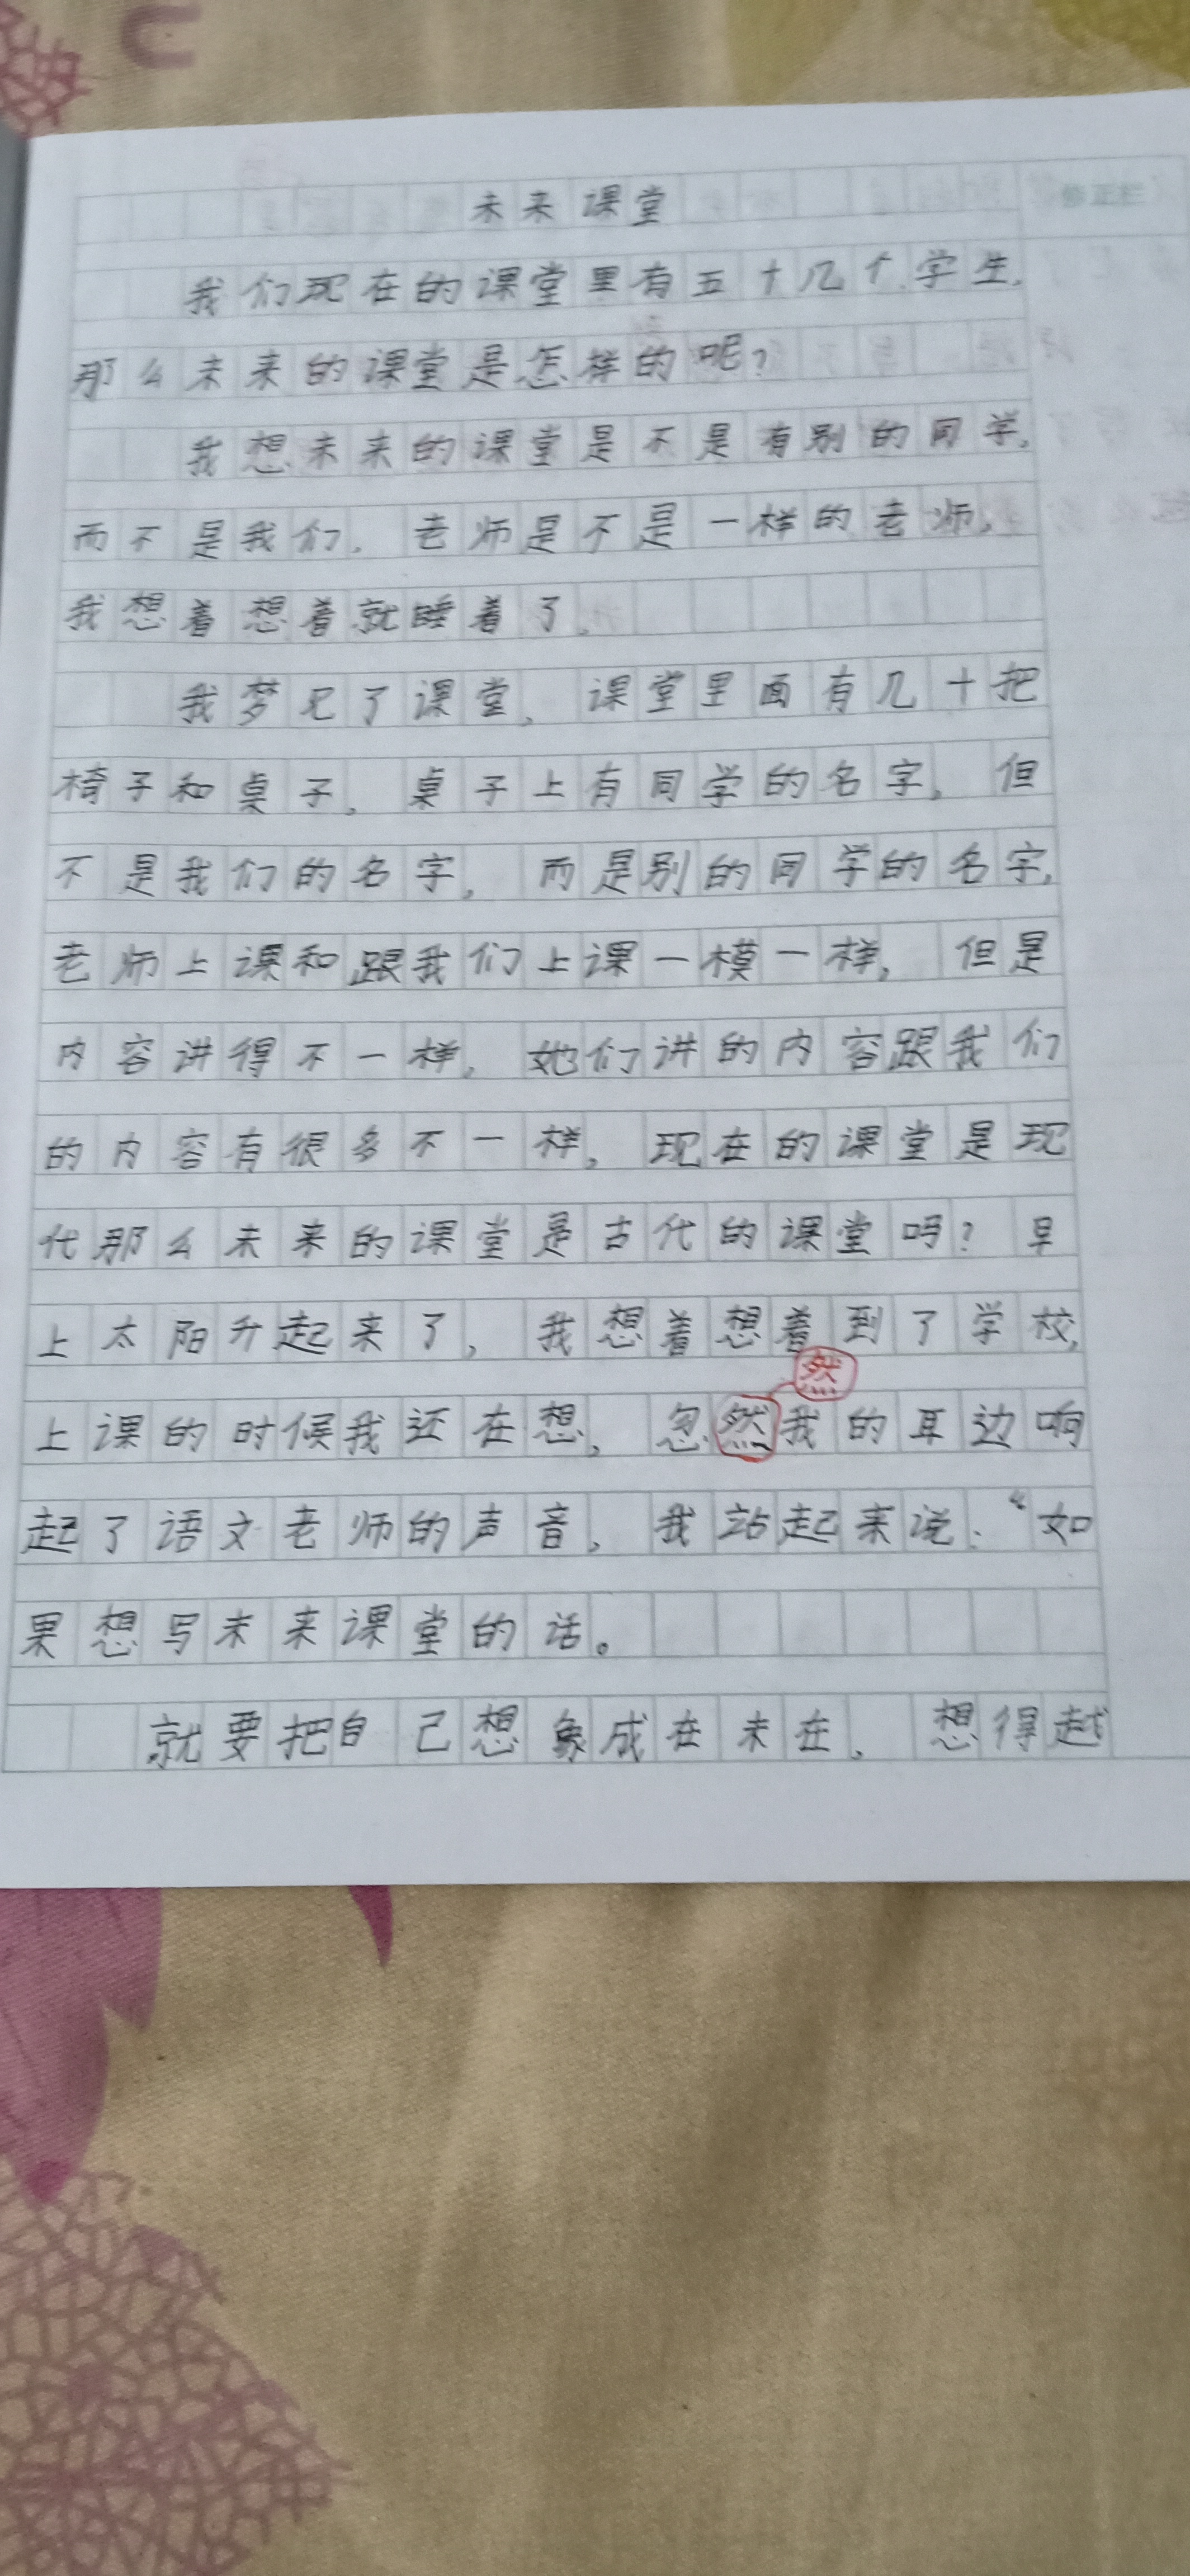 未来课堂
我们现在的课堂里有五十几个学生,
那么未来的课堂是怎样的呢?
我想未来的课堂是不是有别的同学,
而不是我们,老师是不是一样的老师,
我想着想着就睡着了,
我梦见了课堂,课堂里面有几十把
椅子和桌子,桌子上有同学的名字,但
不是我们的名字,而是别的同学的名字,
老师上课和跟我们上课一模一样,但是
内容讲得不一样,她们讲的内容跟我们
的内容有很多不一样,现在的课堂是现
代那么未来的课堂是古代的课堂吗?早
上太阳升起来了,我想着想着到了学校,
然
上课的时候我还在想,忽然我的耳边响
起了语文老师的声音,我站起来说:“如
果想写未来课堂的话。
就要把自己想象成在未在,想得越